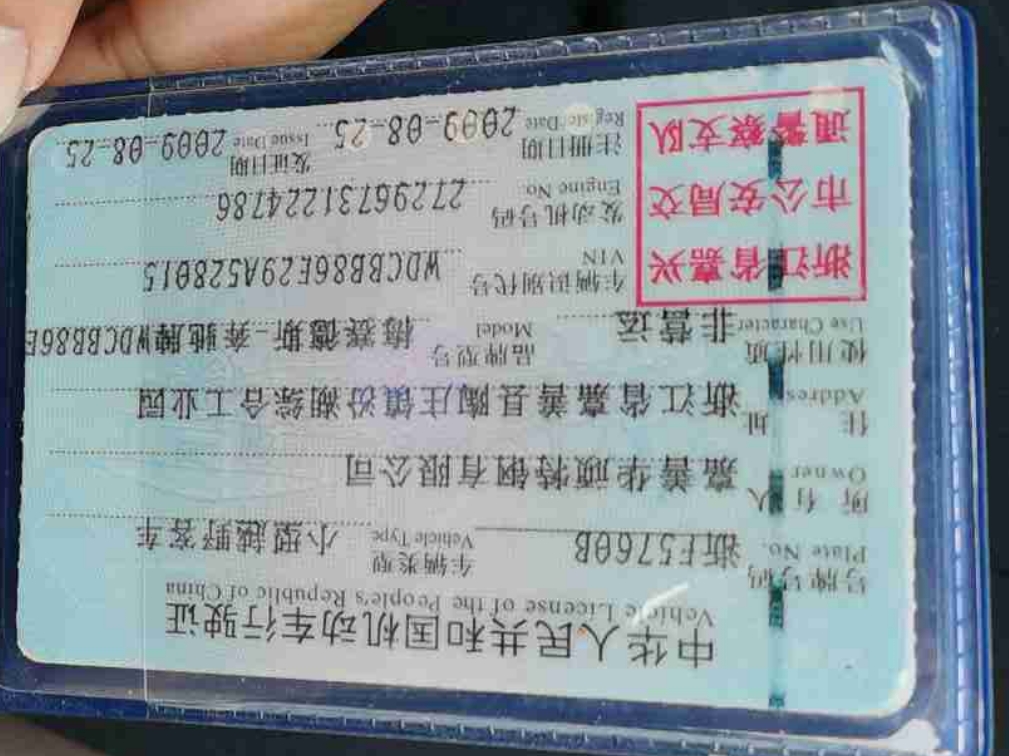 中华人民共和国机动车行驶证
Vehicle License of the People's Republic of China
号牌号码 浙F5760B 车辆类型 小型越野客车
Plate No. Vehicle Type
所有人 嘉善华顽特钢有限公司
Owner
住址 浙江省嘉善县陶庄镇汾湖综合工业园
Address
使用性质 非营运 品牌型号 梅赛德斯-奔驰牌WDCBB86E
Use Character Model
浙江省嘉兴
市公安局交
通警察支队
车辆识别代号 WDCBB86E29A528015
VIN
发动机号码 27296731224786
Engine No.
注册日期 2009-08-25 发证日期 2009-08-25
Register Date Issue Date